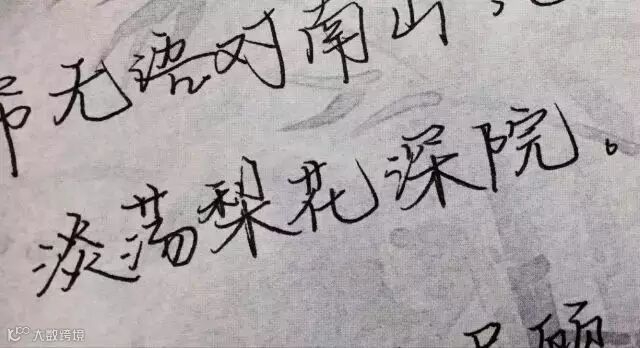 无语对南山
淡荡梨花深院。
大数跨境